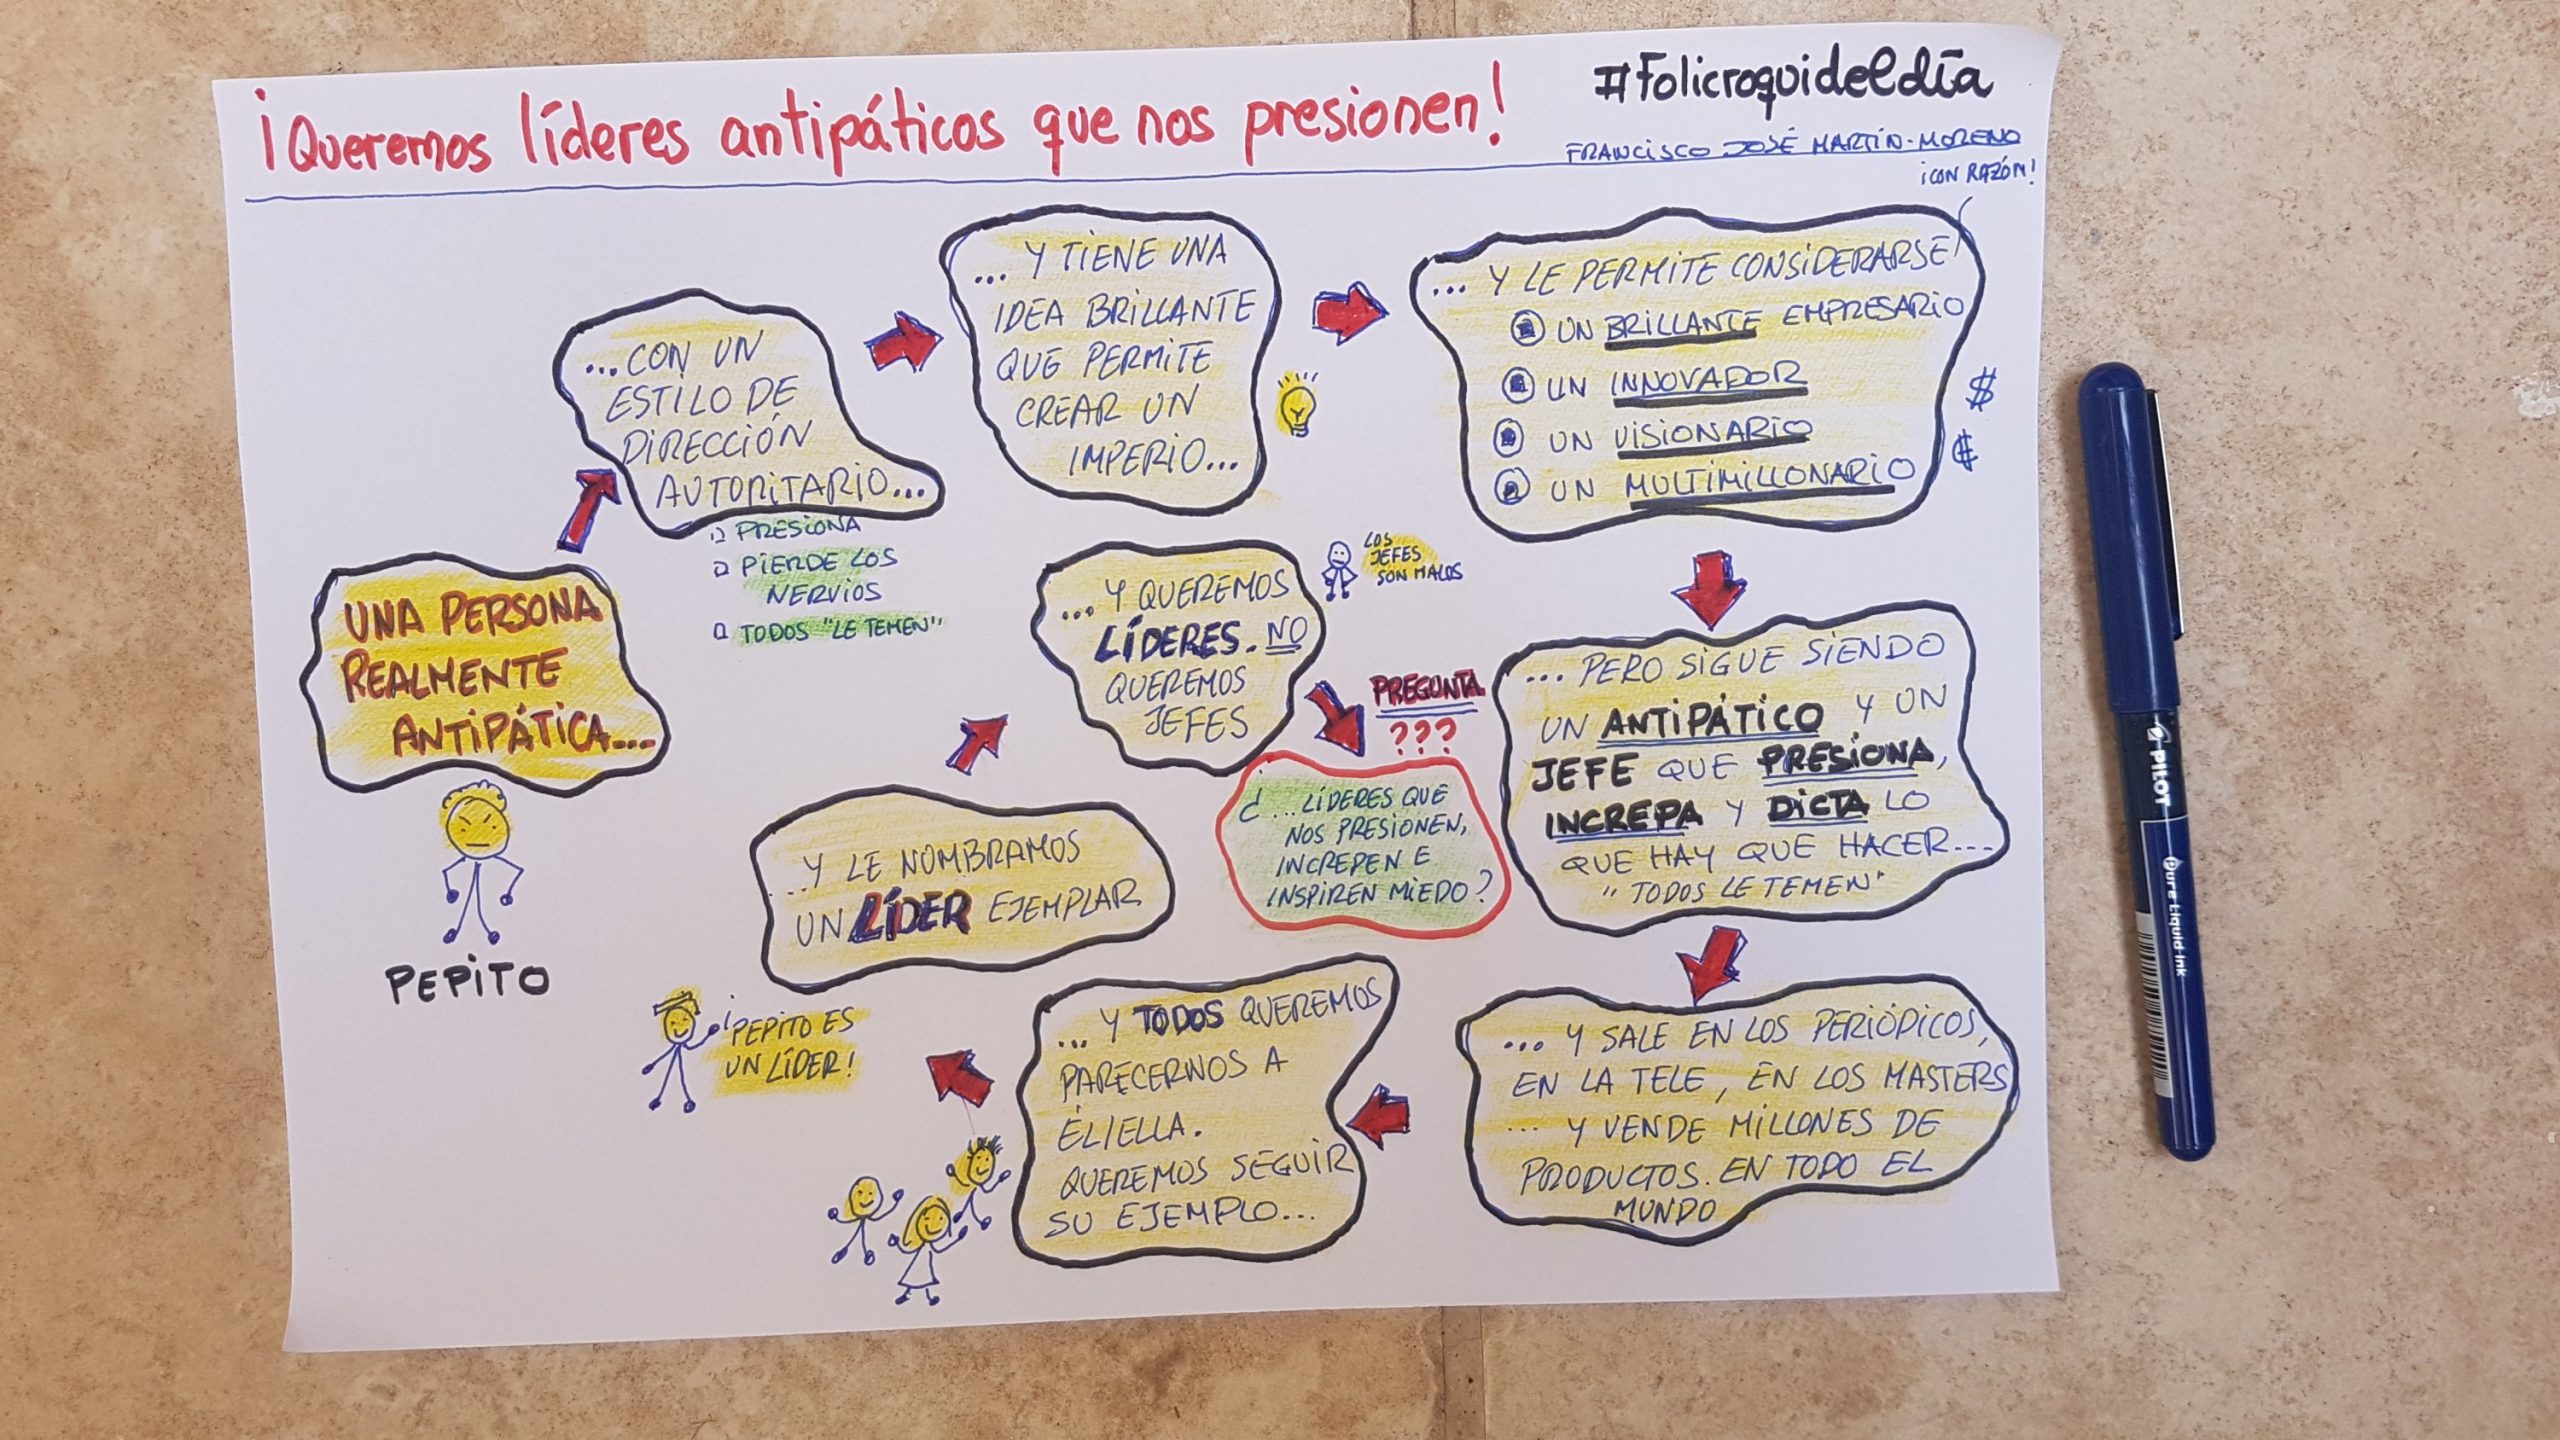 ¡Queremos líderes antipáticos que nos presionen!
#Folicroquideldía
FRANCISCO JOSÉ MARTÍN-MORENO
¡CON RAZÓN!
UNA PERSONA
REALMENTE
ANTIPÁTICA...
PEPITO
...CON UN
ESTILO DE
DIRECCIÓN
AUTORITARIO...
PRESIONA
PIERDE LOS
NERVIOS
TODOS "LE TEMEN"
... Y TIENE UNA
IDEA BRILLANTE
QUE PERMITE
CREAR UN
IMPERIO...
... Y LE PERMITE CONSIDERARSE
UN BRILLANTE EMPRESARIO
UN INNOVADOR
UN VISIONARIO
UN MULTIMILLONARIO
$
€
... PERO SIGUE SIENDO
UN ANTIPÁTICO Y UN
JEFE QUE PRESIONA,
INCREPA Y DICTA LO
QUE HAY QUE HACER...
"TODOS LE TEMEN"
... Y SALE EN LOS PERIÓDICOS,
EN LA TELE, EN LOS MASTERS
... Y VENDE MILLONES DE
PRODUCTOS. EN TODO EL
MUNDO
... Y TODOS QUEREMOS
PARECERNOS A
ÉL/ELLA.
QUEREMOS SEGUIR
SU EJEMPLO...
¡PEPITO ES
UN LÍDER!
...Y LE NOMBRAMOS
UN LÍDER EJEMPLAR
... Y QUEREMOS
LÍDERES. NO
QUEREMOS
JEFES
LOS
JEFES
SON MALOS
PREGUNTA
???
¿...LÍDERES QUE
NOS PRESIONEN,
INCREPEN E
INSPIREN MIEDO?
PILOT
Pure Liquid Ink